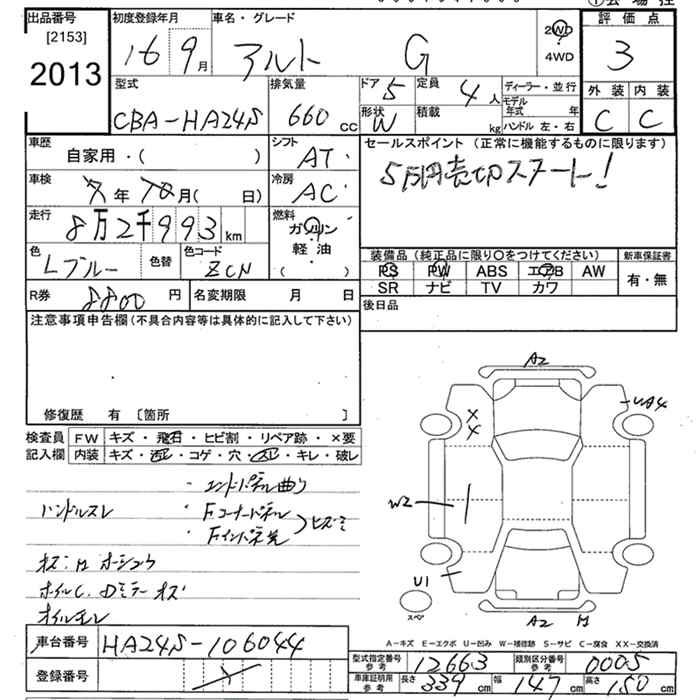 ①会場控
出品番号 [2153] 2013
初度登録年月 16 9月
車名・グレード アルト G
2WD 4WD
評価点 3
外装 C 内装 C
型式 CBA-HA24S
排気量 660 cc
ドア 5 定員 4人
形状 W 積載 kg
ディーラー・並行
モデル年式 年
ハンドル 左・右
車歴 自家用・( )
シフト AT
セールスポイント (正常に機能するものに限ります)
5万円売切スタート!
車検 7年 10月( 日)
冷房 AC
走行 8万2千993 km
燃料 ガソリン・軽油 ( )
色 Lブルー 色替 色コード ZCN
装備品 (純正品に限り〇をつけてください)
PS PW ABS エアB AW
SR ナビ TV カワ
新車保証書 有・無
R券 8800円 名変期限 月 日
後日品
注意事項申告欄 (不具合内容等は具体的に記入して下さい)
修復歴 有 [箇所 ]
検査員記入欄
FW キズ・飛石・ヒビ割・リペア跡・×要
内装 キズ・汚レ・コゲ・穴・スレ・キレ・破レ
・エンドパネル曲り
ハンドルスレ
・Fコーナーパネル
・Fインパネ先 ヒズミ
オズ:M ホーシュウ
ホイルC. Dミラーキズ
オイルモレ
A2
UA4
X
X
W2
U1
スペア
A2 M
A-キズ E-エクボ U-凹み W-補修跡 S-サビ C-腐食 XX-交換済
車台番号 HA24S-106044
登録番号
型式指定番号 参考 12663 類別区分番号 参考 0005
車庫証明用 参考 長さ 339 cm 幅 147 cm 高さ 150 cm